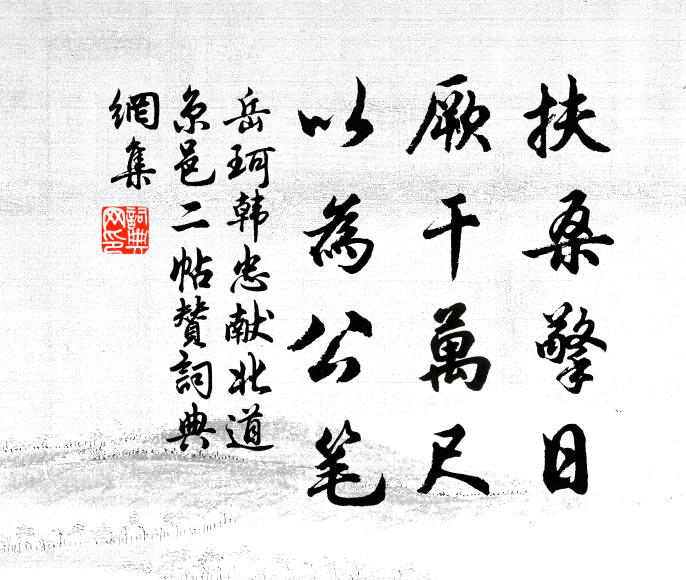 扶桑擎日
厥干萬尺
以為公笔
岳珂韩忠献北道
京邑二帖贊詞典
網集
詞典網印